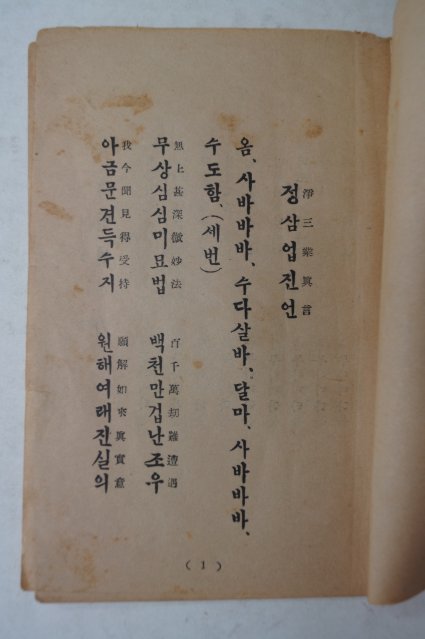 정삼업진언
淨三業眞言
옴、사바바바、수다살바、달마、사바바바、
수도함、(세번)
무상심심미묘법 백천만겁난조우
無上甚深微妙法 百千萬劫難遭遇
아금문견득수지 원해여래진실의
我今聞見得受持 願解如來眞實意
(1)